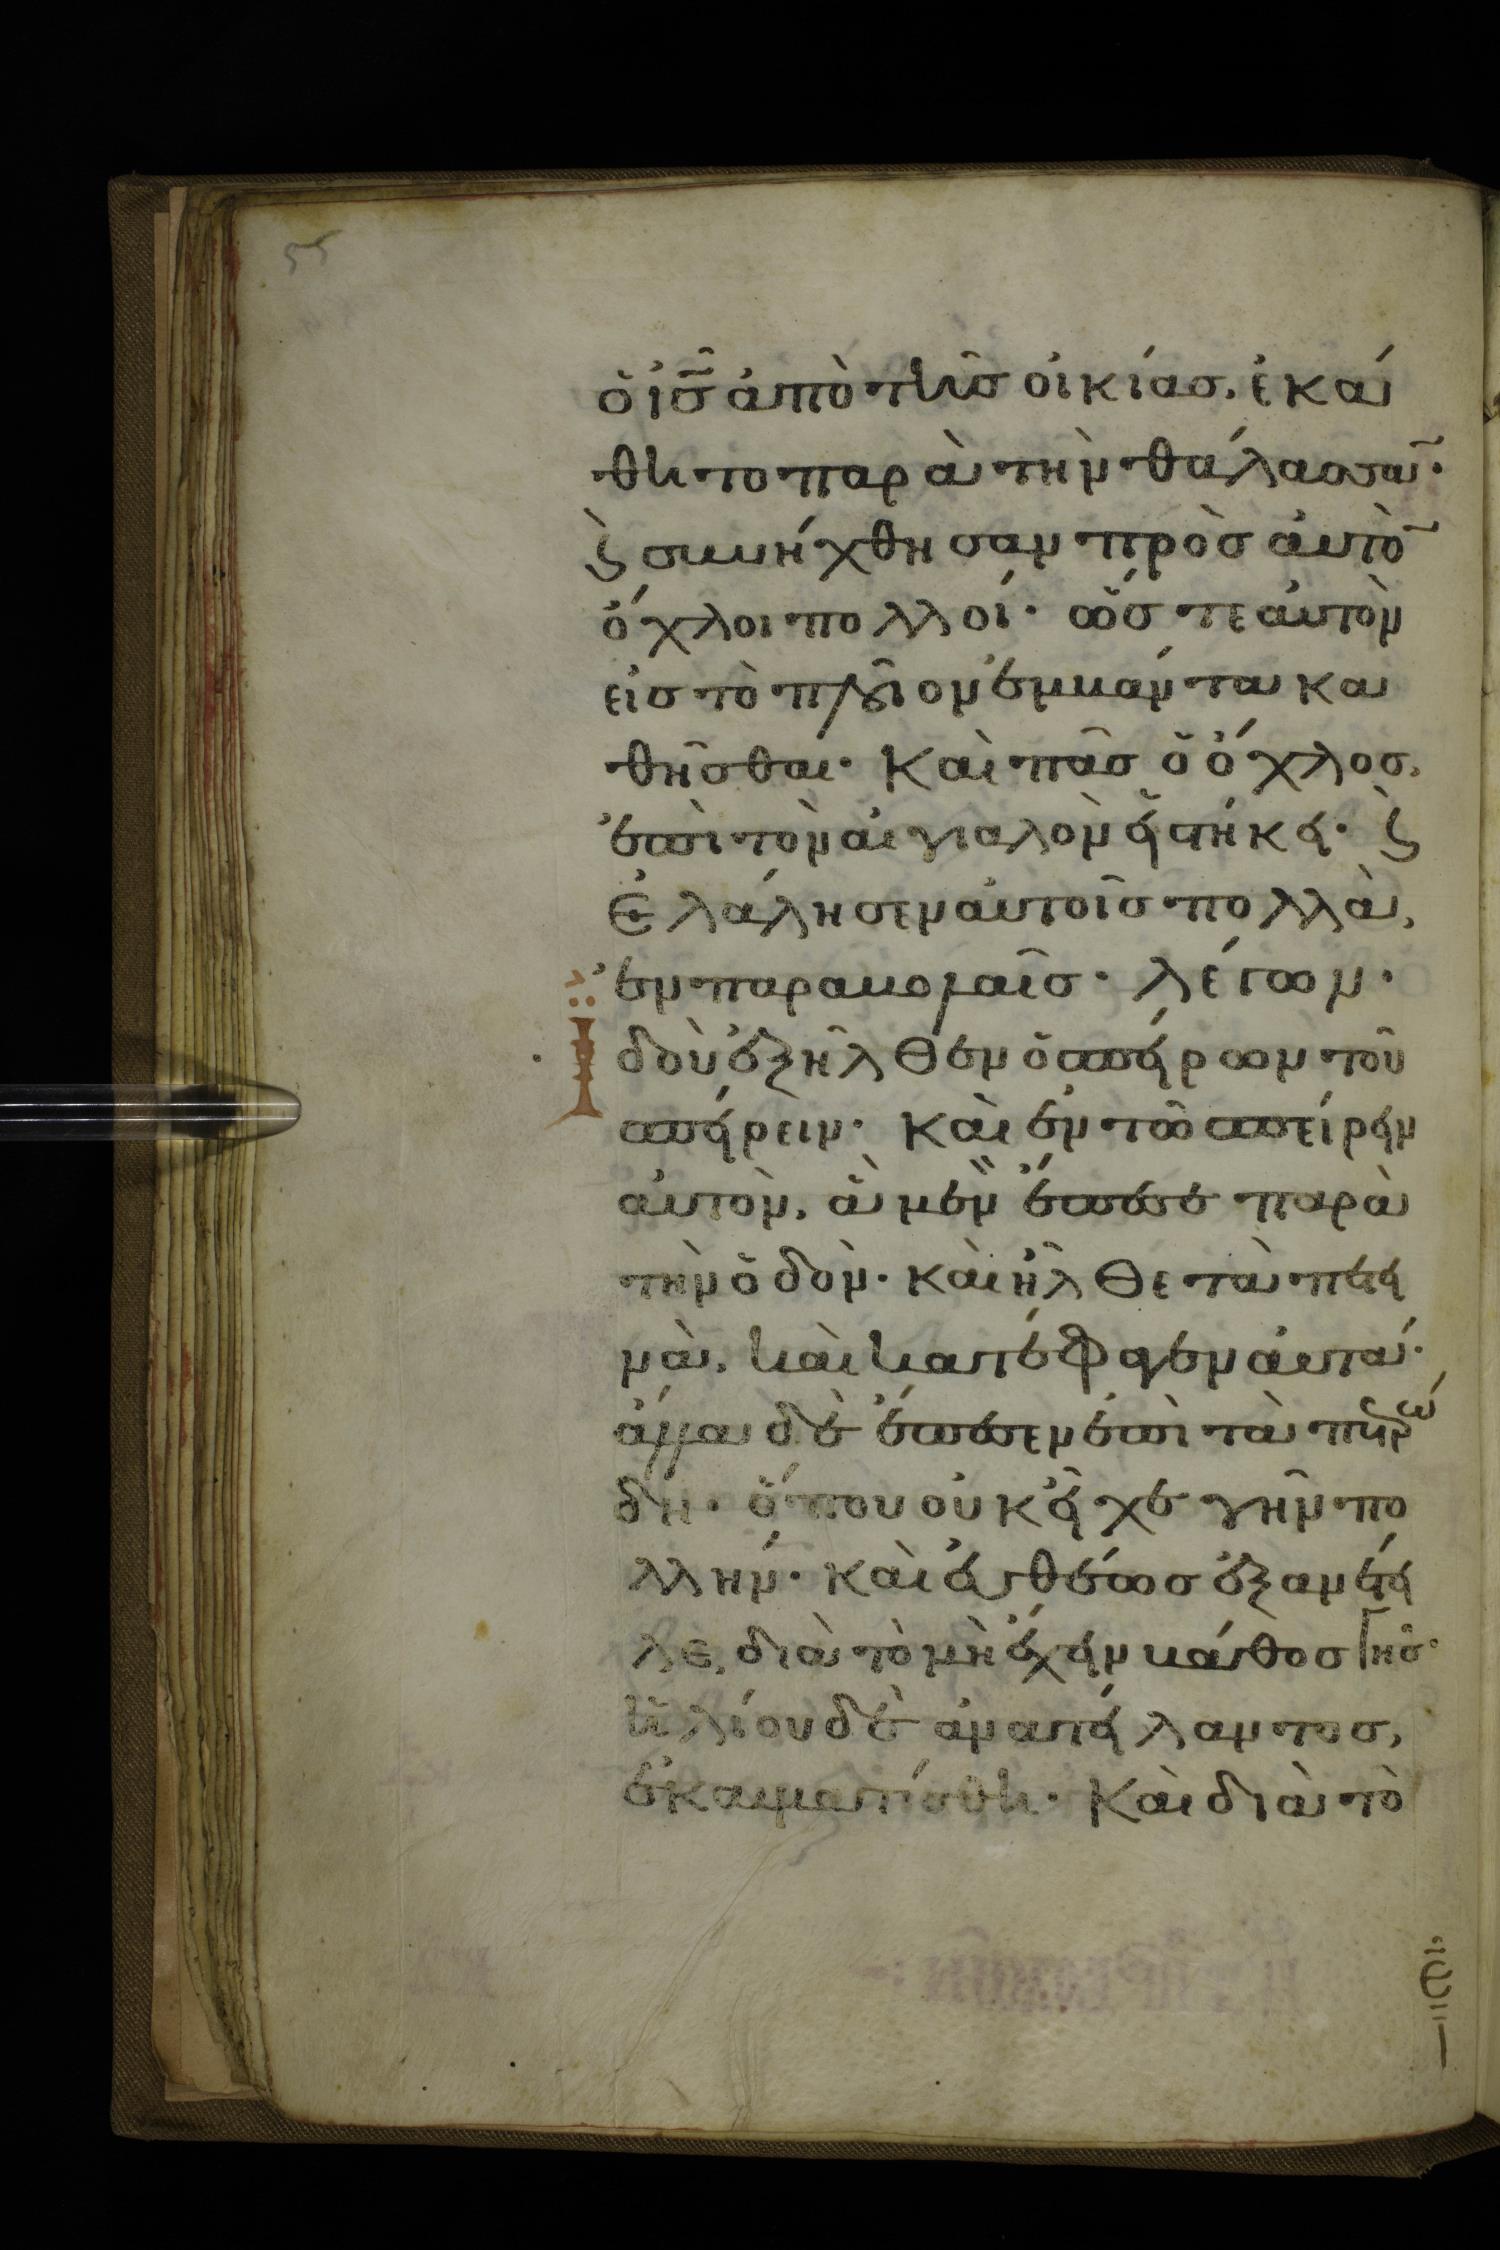 55
ὁ ι̅ς̅ ἀπὸ τῆς οἰκίας, ἐκά
θητο παρὰ τὴν θάλασσα̅·
ϗ συνήχθησαν πρὸς αὐτὸ̅
ὄχλοι πολλοί· ὥστε αὐτὸν
εἰς τὸ πλοῖον ἐμβάντα κα
θῆσθαι· Καὶ πᾶς ὁ ὄχλος,
ἐπὶ τὸν αἰγιαλὸν εἱστήκει· ϗ
ἐλάλησεν αὐτοῖς πολλὰ,
ἐν παραβολαῖς· λέγων·
Ἰδοὺ ἐξῆλθεν ὁ σπείρων τοῦ
σπείρειν· Καὶ ἐν τῶ σπείρειν
αὐτὸν, ἃ μὲν ἔπεσε παρὰ
τὴν ὁδὸν· καὶ ἦλθε τὰ πετει
νὰ, καὶ κατέφαγεν αὐτά·
ἄλλα δὲ ἔπεσεν ἐπὶ τὰ πετρώ
δη· ὅπου οὐκ εἶχε γῆν πο
λλήν· καὶ εὐθέως ἐξανέτει
λε, διὰ τὸ μὴ ἔχειν βάθος γῆς·
ἡλίου δὲ ἀνατείλαντος,
ἐκαυματίσθη· Καὶ διὰ τὸ